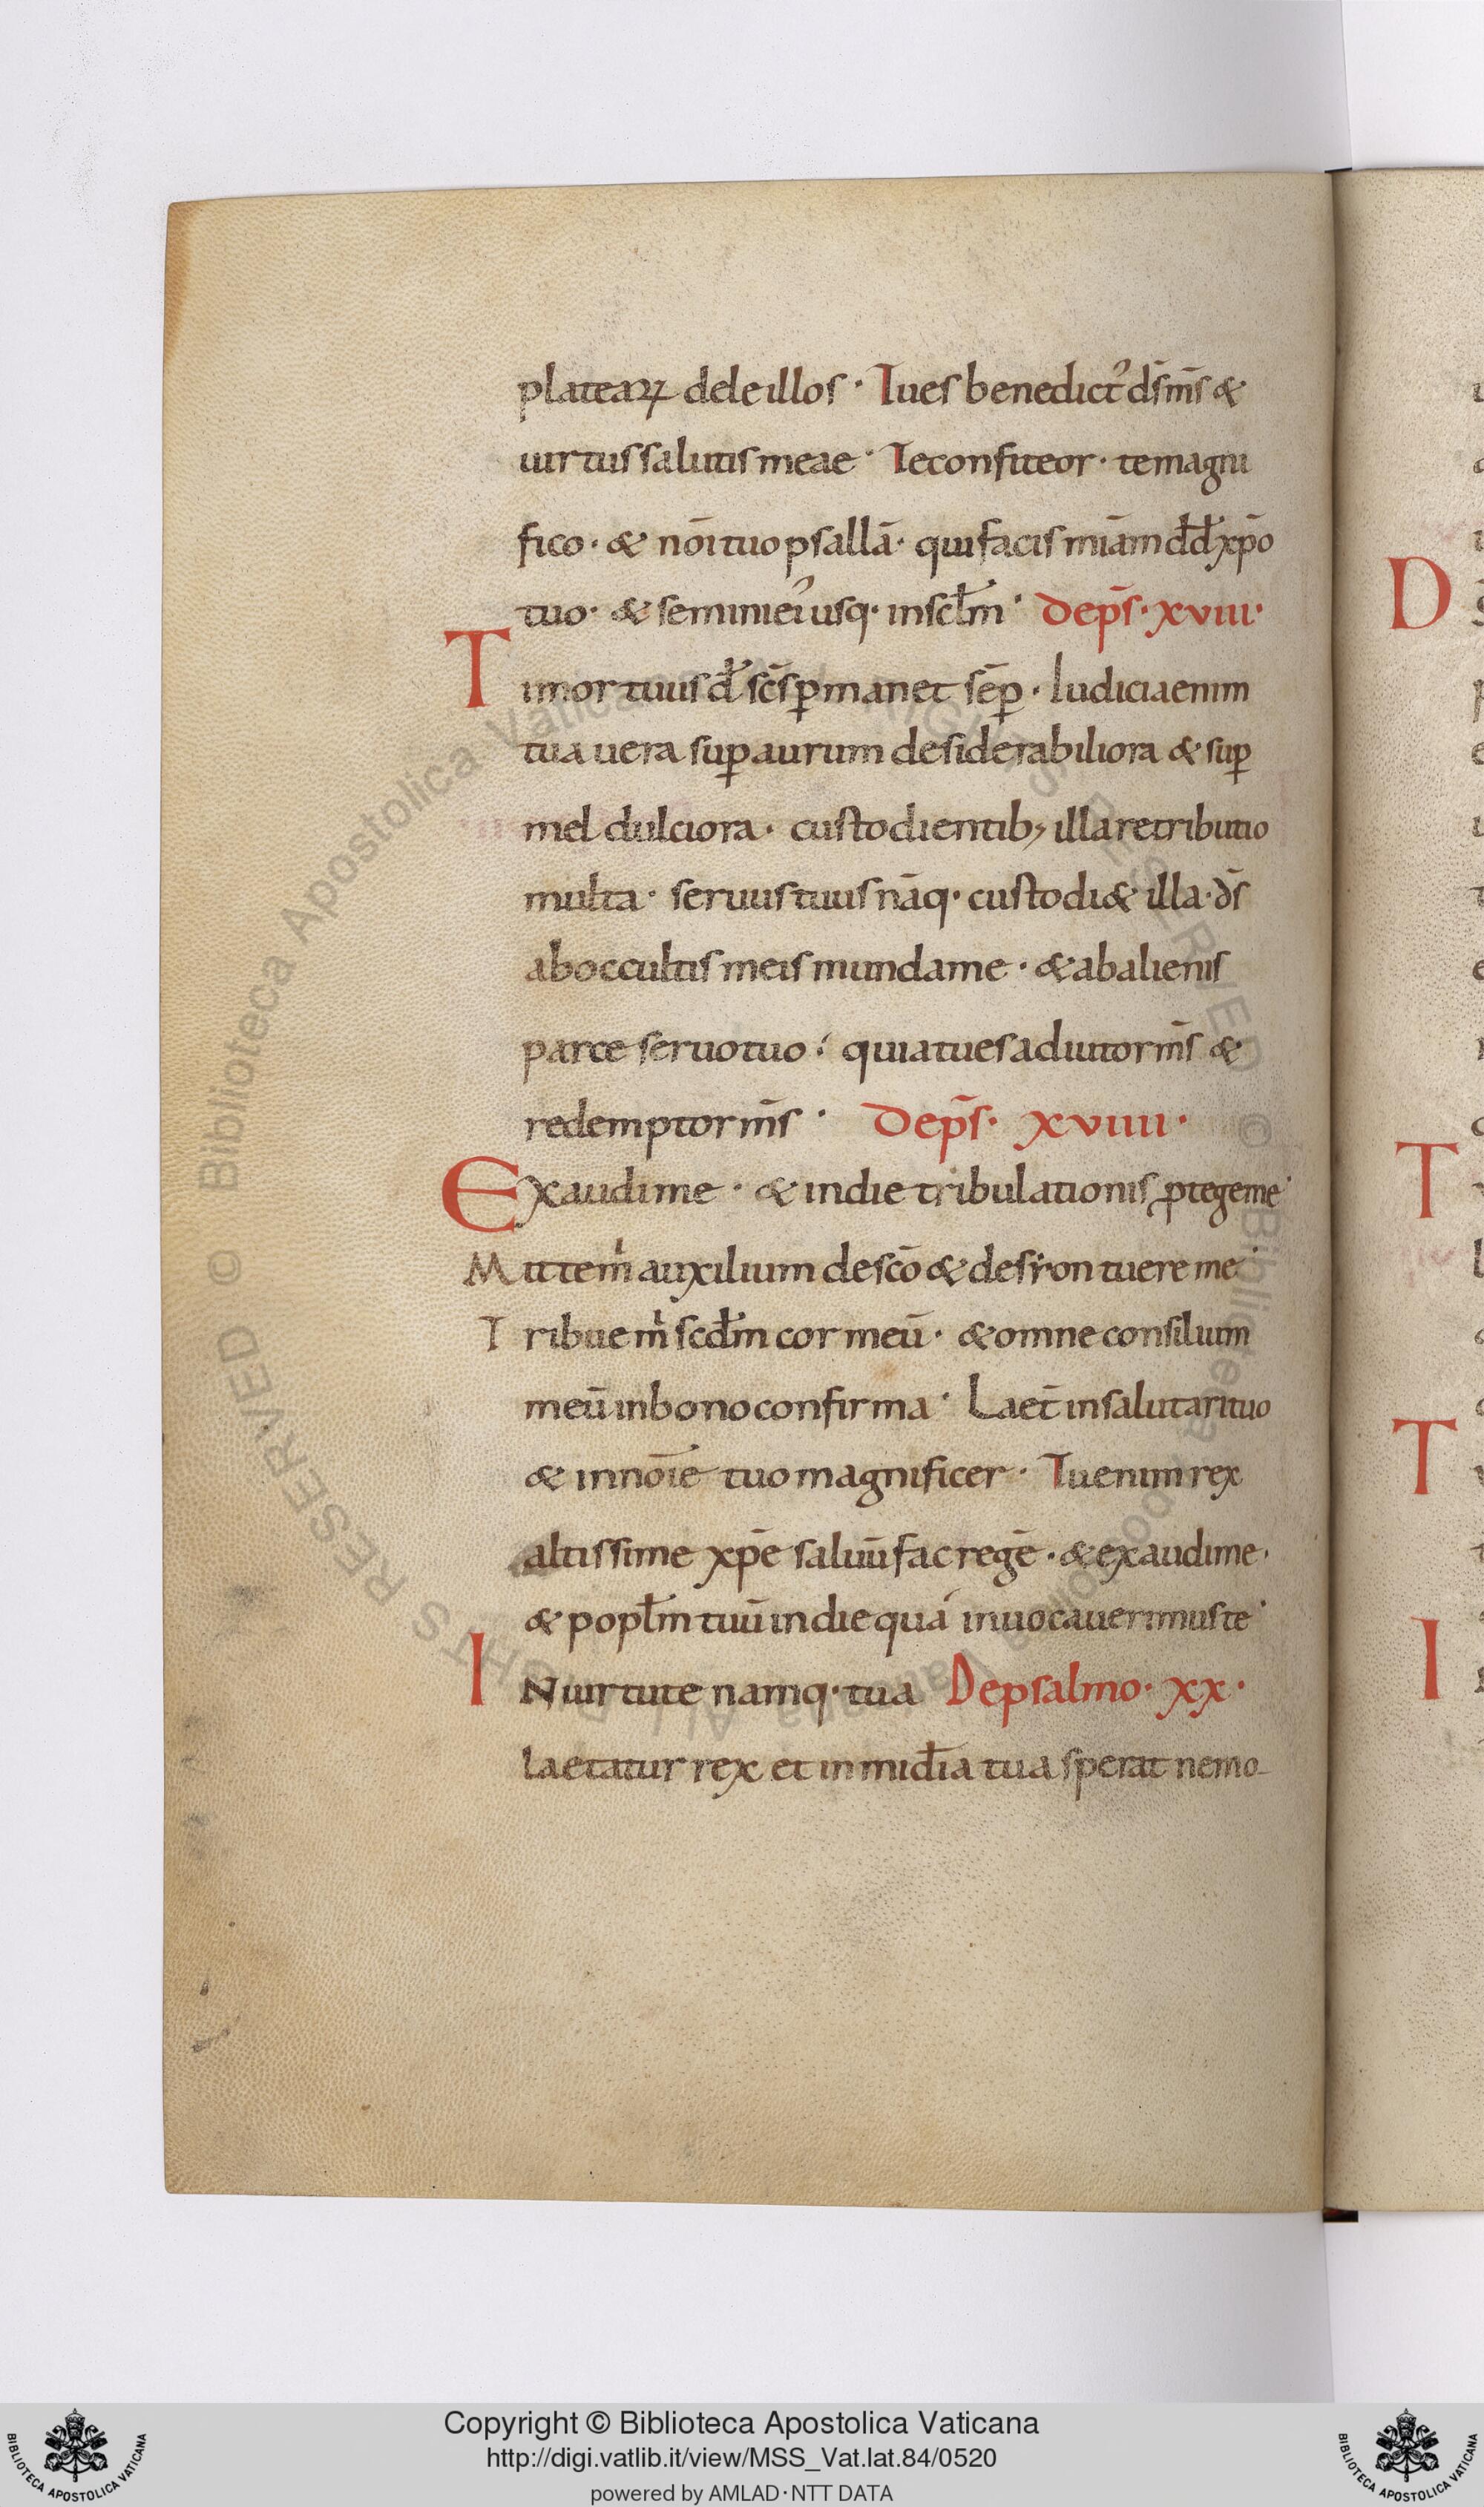 plateaꝝ dele illos · Tu es benedictꝰ d̄s m̄s &
uirtus salutis meae · Te confiteor · te magni
fico · & nōi tuo psallā · qui facis miām d̄d x̄po
tuo · & semini eiꝰ usq· in sc̄lm · De p̄s · xviii·
Timor tuus d̄ sc̄s ꝑmanet sēꝑ · Iudicia enim
tua uera suꝑ aurum desiderabiliora & suꝑ
mel dulciora · custodientib; illa retributio
multa · seruus tuus nāq· custodi& illa · d̄s
ab occultis meis munda me · & ab alienis
parce seruo tuo · quia tu es adiutor m̄s &
redemptor m̄s · De p̄s· xviiii·
Exaudi me · & in die tribulationis ꝓtege me ·
Mitte m̄ auxilium de sc̄o & de syon tuere me ·
Tribue m̄ scd̄m cor meū · & omne consilium
meū in bono confirma · Laet̄ in salutari tuo
& in nōie tuo magnificer · Tu enim rex
altissime x̄pe saluū fac regē · & exaudi me ·
& popl̄m tuū in die qua inuocauerimus te ·
IN uirtute namq· tua De psalmo · xx·
laetatur rex et in mid̄ia tua sperat nemo
Copyright © Biblioteca Apostolica Vaticana
http://digi.vatlib.it/view/MSS_Vat.lat.84/0520
powered by AMLAD·NTT DATA